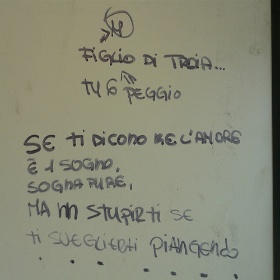 FIGLIO DI TROIA...
TU 6 PEGGIO
SE TI DICONO KE L'AMORE
È 1 SOGNO,
SOGNA PURE,
MA NN STUPIRTI SE
TI SVEGLIERTI PIANGENDO